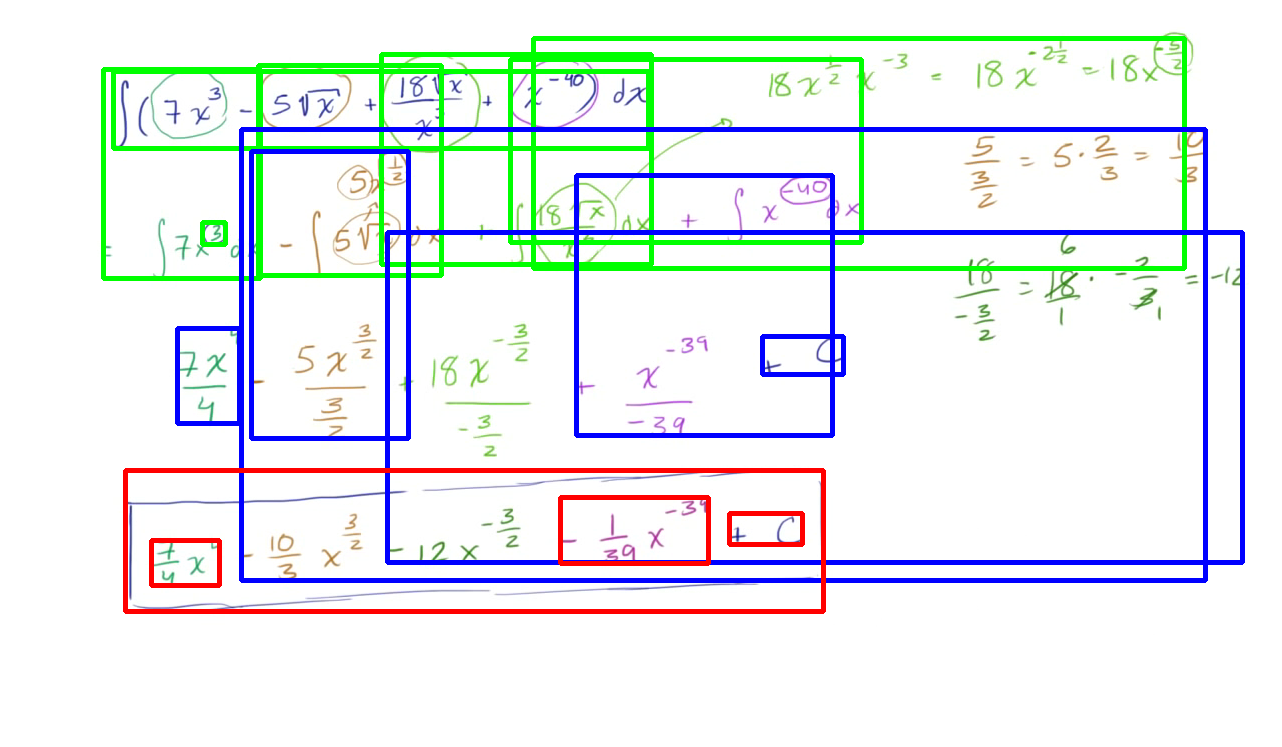 ∫(7x³ - 5√x + 18√x/x³ + x^-40) dx
18x^(1/2) x^-3 = 18x^(-2 1/2) = 18x^(-5/2)
5x^(1/2)
5/(3/2) = 5 · 2/3 = 10/3
= ∫7x³ dx - ∫5√x dx + ∫18√x/x³ dx + ∫x^-40 dx
18/(-3/2) = 18/1 · -2/3 = -12
6
1
7x⁴/4 - 5x^(3/2)/(3/2) + 18x^(-3/2)/(-3/2) + x^-39/-39 + C
7/4 x⁴ - 10/3 x^(3/2) - 12x^(-3/2) - 1/39 x^-39 + C